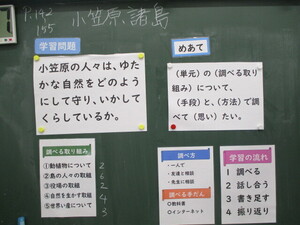 P.192
195
小笠原諸島
学習問題
小笠原の人々は、ゆた
かな自然をどのように
にして守り、いかして
くらしているか。
めあて
(単元)の(調べる取り
組み)について、
(手段)と、(方法)で調
べて(思い)たい。
調べる取り組み
①動植物について 2
②島の人々の取組 6
③役場の取組 2
④自然を生かす取組 4
⑤世界い産について 3
調べ方
・一人で
・友達と相談
・先生に相談
調べる手だん
○教科書
○インターネット
学習の流れ
1 調べる
2 話し合う
3 書き足す
4 振り返り